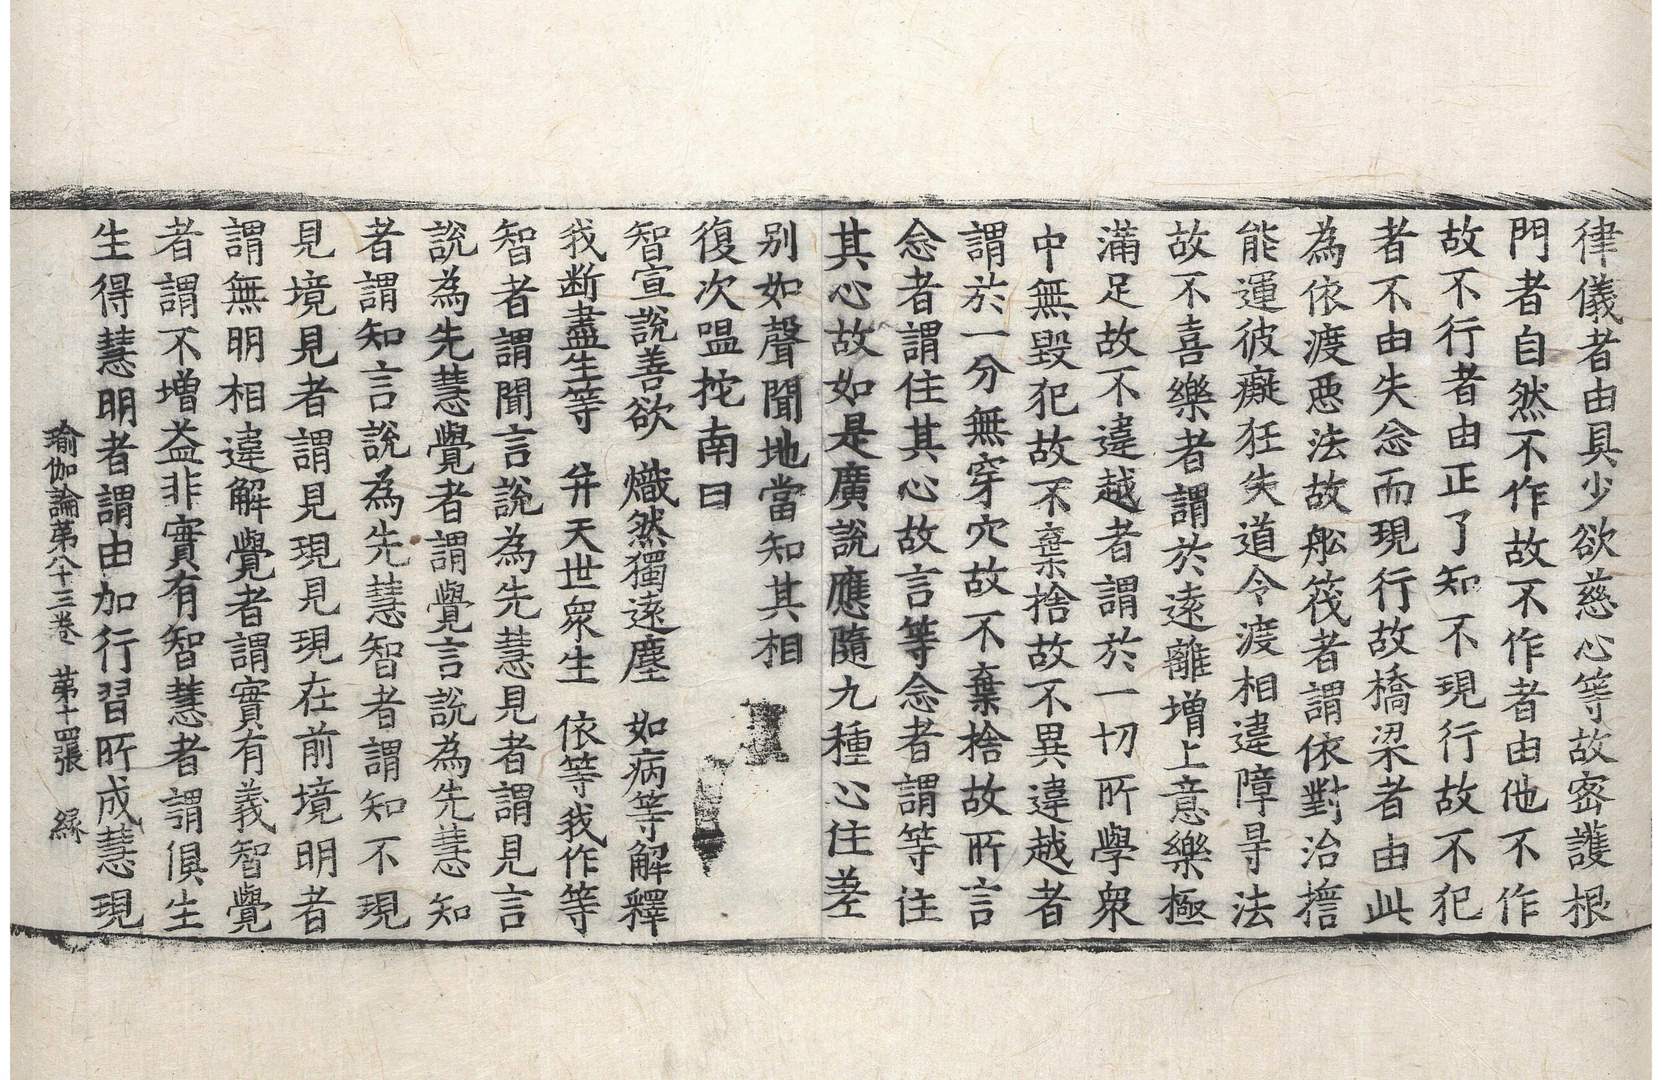 律儀者由具少欲慈心等故密護根
門者自然不作故不作者由他不作
故不行者由正了知不現行故不犯
者不由失念而現行故橋梁者由此
為依渡惡法故舩筏者謂依對治擔
能運彼癡狂失道令渡相違障㝵法
故不喜樂者謂於遠離增上意樂極
滿足故不違越者謂於一切所學衆
中無毀犯故不棄捨故不異違越者
謂於一分無穿穴故不棄捨故所言
念者謂住其心故言等念者謂等住
其心故如是廣說應隨九種心住差
別如聲聞地當知其相
復次嗢拕南曰
智宣說善欲 熾然獨遠塵 如病等解釋
我断盡生等 弁天世衆生 依等我作等
智者謂聞言說為先慧見者謂見言
說為先慧覺者謂覺言說為先慧知
者謂知言說為先慧智者謂知不現
見境見者謂見現見現在前境明者
謂無明相違解覺者謂實有義智覺
者謂不增益非實有智慧者謂俱生
生得慧明者謂由加行習所成慧現
瑜伽論第八十三卷 第十四張 緣